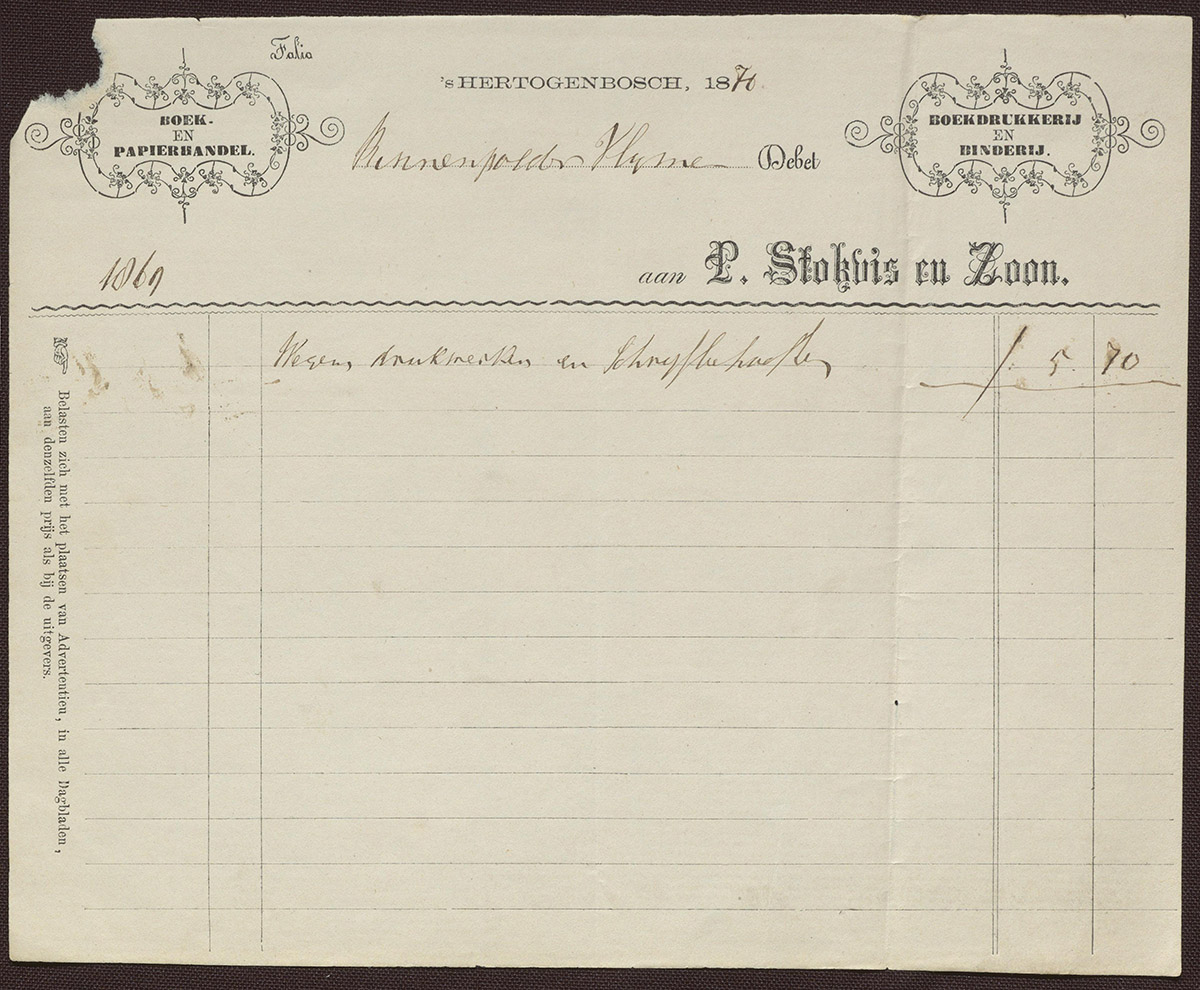 Folio
'sHERTOGENBOSCH, 1870
BOEK-
EN
PAPIERHANDEL.
BOEKDRUKKERIJ
EN
BINDERIJ.
Binnenpolder Vlyme Debet
1869
aan P. Stokvis en Zoon.
Wegens drukwerken en Schryfbehoeften f 5 70
Belasten zich met het plaatsen van Advertentien, in alle Dagbladen,
aan denzelfden prijs als bij de uitgevers.